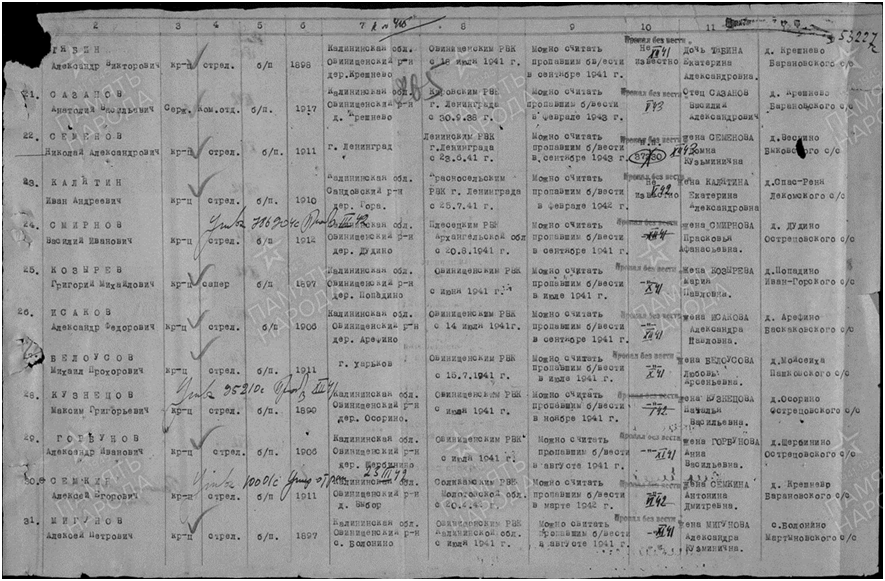 2 3 4 5 6 7 8 9 10 11
53227
Александр Викторович кр-ц стрел. б/п 1898 Калининская обл. Овинищенский р-н дер. Крешнево Овинищенским РВК с 18 июля 1941 г. Можно считать пропавшим б/вести в сентябре 1941 г. Пропал без вести Не известно XII 41 Дочь ТАБИНА Екатерина Александровна. д. Крешнево Барановского с/с
21. САЗАНОВ
Анатолий Васильевич Серж. Ком.отд. б/п. 1917 Калининская обл. Овинищенский р-н д. Крешнево Кировским РВК г. Ленинграда с 30.9.38 г. Можно считать пропавшим б/вести в феврале 1943 г. Пропал без вести V 43 Отец САЗАНОВ Василий Александрович д. Крешнево Барановского с/с
22. СЕМЕНОВ
Николай Александрович кр-ц стрел. б/п. 1911 г. Ленинград Ленинским РВК г.Ленинграда с 23.6.41 г. Можно считать пропавшим б/вести в сентябре 1943 г. XII 43 жена СЕМЕНОВА Кузьминична д. Веснино Быковского с/с
23. КАЛЯТИН
Иван Андреевич кр-ц стрел. б/п. 1910 Калининская обл. Сандовский р-н дер. Гора. Красносельским РВК г. Ленинграда с 25.7.41 г. Можно считать пропавшим б/вести в феврале 1942 г. Пропал без вести Не известно V 42 жена КАЛЯТИНА Екатерина Александровна д.Спас-Реня с/с
24. СМИРНОВ
Василий Иванович кр-ц стрел. б/п 1912 Калининская обл. Овинищенский р-н дер. Дудино Плесецким РВК Архангельской обл с 20.8.1941 г. Можно считать пропавшим б/вести в сентябре 1941 г. Пропал без вести -"- XII 41 жена СМИРНОВА Прасковья Афанасьевна. д. ДУДИНО Острецовского с/с
25. КОЗЫРЕВ
Григорий Михайлович кр-ц сапер б/п 1897 Калининская обл. Овинищенский р-н дер. Попадино Овинищенским РВК с июня 1941 г. Можно считать пропавшим б/вести в июле 1941 г. Пропал без вести -"- X 41 жена КОЗЫРЕВА Мария Павловна. д. Попадино Иван-Горского с/с
26. ИСАКОВ
Александр Федорович кр-ц стрел. б/п 1906 Калининская обл. Овинищенский р-н дер. Арефино Овинищенским РВК с 14 июля 1941г. Можно считать пропавшим б/вести в сентябре 1941 г. Пропал без вести -"- XII 41 жена ИСАКОВА Александра Павловна. д. Арефино Баскаковского с/с
БЕЛОУСОВ
Михаил Прохорович кр-ц стрел. б/п. 1911 г. Харьков Овинищенским РВК с 15.7.1941 г. Можно считать пропавшим б/вести в июле 1941 г. Пропал без вести -"- X 41 жена БЕЛОУСОВА Любовь Арсеньевна. д.Мойсеиха с/с
28. КУЗНЕЦОВ
Максим Григорьевич кр-ц стрел. б/п 1890 Калининская обл. Овинищенский р-н дер. Осорино. Овинищенским РВК с июля 1941 г. Можно считать пропавшим б/вести в ноябре 1941 г. Пропал без вести I 42 жена КУЗНЕЦОВА Наталья Васильевна. д.Осорино с/с
29. ГОРБУНОВ
Александр Иванович кр-ц стрел. б/п. 1906 Калининская обл. Овинищенский р-н дер. Щербинино Овинищенским РВК с июля 1941 г. Можно считать пропавшим б/вести в августе 1941 г. Пропал без вести -"- XI 41 жена ГОРБУНОВА Анна Васильевна. д.Щербинино Острецовского с/с
30. СЕМКИН
Алексей Егорович кр-ц стрел. б/п 1911 Калининская обл. Овинищенский р-н д. Выбор РВК обл. с 20.4.41 г. Можно считать пропавшим б/вести в марте 1942 г. Пропал без вести VI 42 жена СЕМКИНА Антонина Дмитревна. д. Крешнево Барановского с/с
31. МИГУНОВ
Алексей Петрович кр-ц стрел. б/п 1897 Калининская обл. Овинищенский р-н с. Болонино Овинищенским РВК Калининской обл. с июля 1941 г. Можно считать пропавшим б/вести в августе 1941 г. Пропал без вести -"- XI 41 жена МИГУНОВА Александра Кузминична. с.Болонино Мартыновского с/с
ПАМЯТЬ НАРОДА